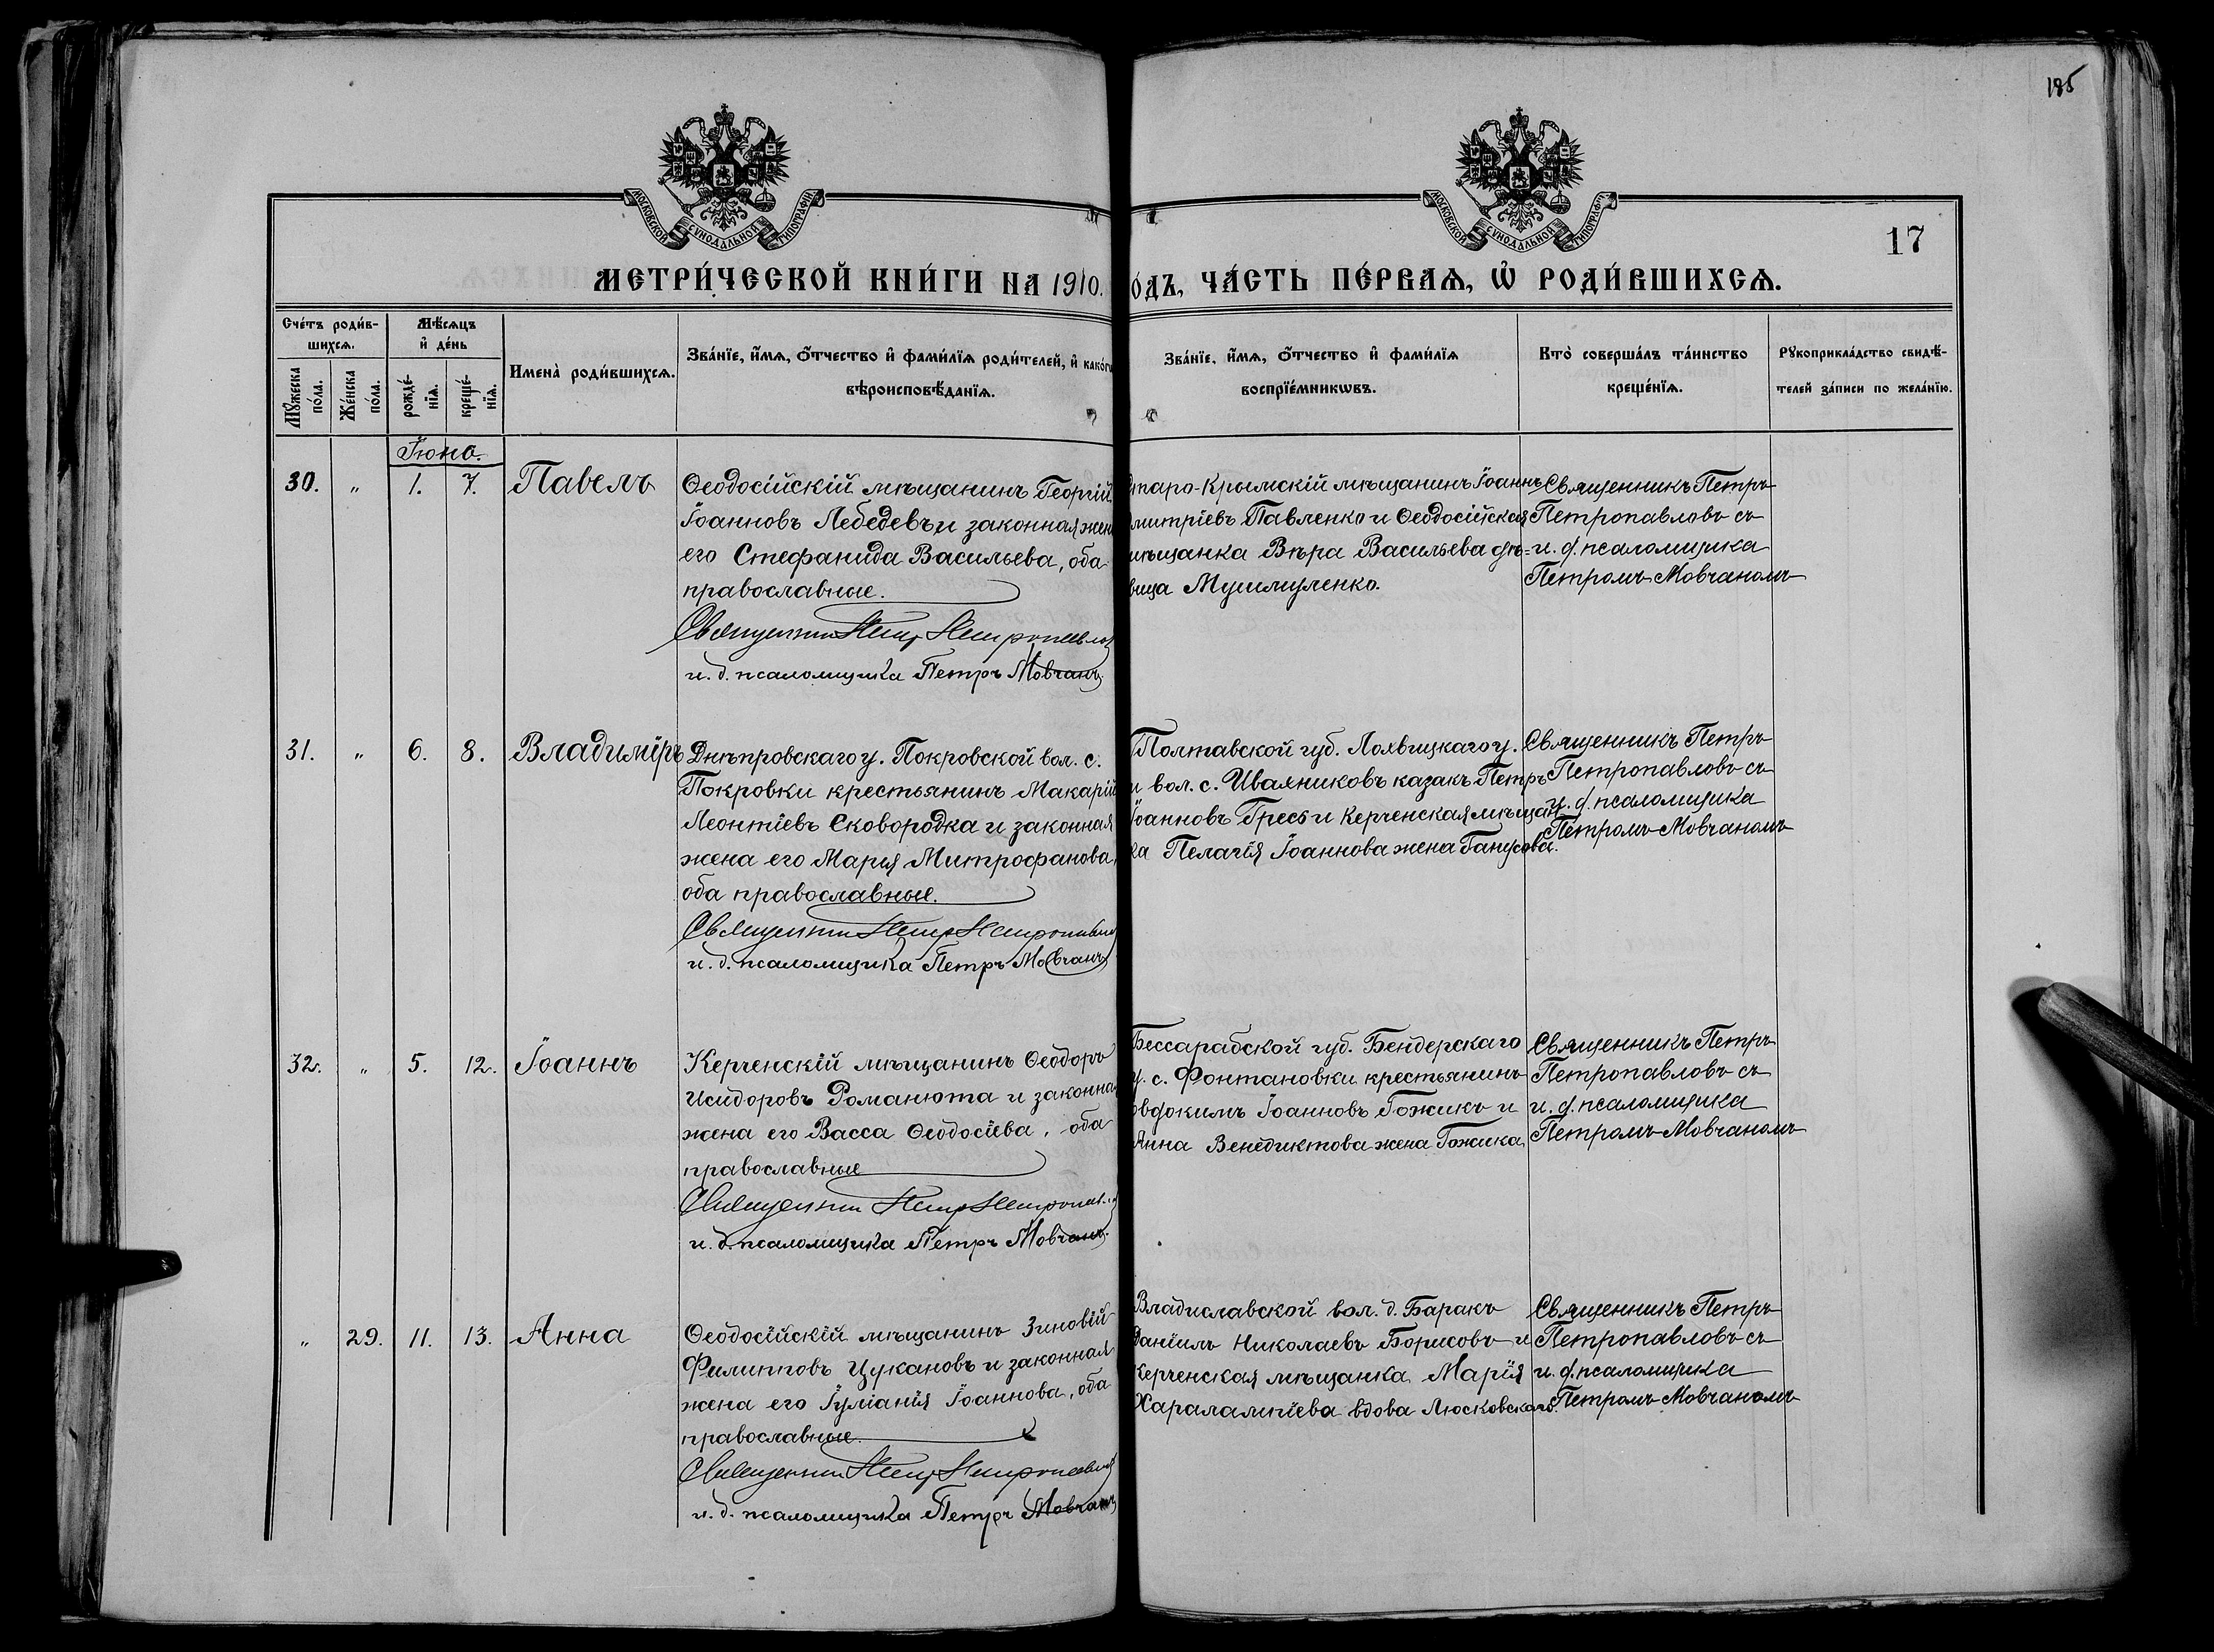 185
МОСКОВСКОЙ СѴНОДАЛЬНОЙ ТИПОГРАФІИ
МОСКОВСКОЙ СѴНОДАЛЬНОЙ ТИПОГРАФІИ
17
МЕТРИ́ЧЕСКОЙ КНИ́ГИ НА 1910. О́ДЪ, ЧА́СТЬ ПЕ́РВАѦ, Ѡ҆ РОДИ́ВШИХСѦ.
Сче́тъ роди́в-
шихсѧ.
Мѣ́сѧцъ
и҆ де́нь
Мꙋ́жеска
по́ла.
Же́нска
по́ла.
рожде́-
нїѧ.
креще́-
нїѧ.
Имена̀ роди́вшихсѧ.
Зва́нїе, и҆́мѧ, ѻ҆́тчество и҆ фами́лїѧ роди́телей, и҆ како́гѡ
вѣроисповѣ́данїѧ.
Зва́нїе, и҆́мѧ, ѻ҆́тчество и҆ фами́лїѧ
воспрїе́мникѡвъ.
Кто̀ соверша́лъ та́инство
креще́нїѧ.
Рꙋкоприкла́дство свидѣ́-
телей за́писи по жела́нїю.
Іюнь.
30. " 1. 7. Павелъ
Ѳеодосійскій мѣщанинъ Георгій
Іоанновъ Лебедевъ и законная жена
его Стефанида Васильева, оба
православные.
Священникъ Петръ Петропавловъ
и. д. псаломщика Петръ Мовчанъ.
Старо-Крымскій мѣщанинъ Іоаннъ
Дмитріевъ Павленко и Ѳеодосійская
мѣщанка Вѣра Васильева дѣ=
вица Мушмуленко.
Священникъ Петръ
Петропавловъ съ
и. д. псаломщика
Петромъ Мовчаномъ
31. " 6. 8. Владиміръ
Днѣпровскаго у. Покровской вол. с.
Покровки крестьянинъ Макарій
Леонтіевъ Сковородка и законная
жена его Марія Митрофанова,
оба православные.
Священникъ Петръ Петропавловъ
и. д. псаломщика Петръ Мовчанъ
Полтавской губ. Лохвицкаго у.
и вол. с. Иваяниковъ казакъ Петръ
Іоанновъ Гресь и Керченская мѣщан
ка Пелагія Іоаннова жена Ганусова.
Священникъ Петръ
Петропавловъ съ
и. д. псаломщика
Петромъ Мовчаномъ
32. " 5. 12. Іоаннъ
Керченскій мѣщанинъ Ѳеодоръ
Исидоровъ Романюта и законная
жена его Васса Ѳеодосіева, оба
православные
Священникъ Петръ Петропавловъ
и. д. псаломщика Петръ Мовчанъ.
Бессарабской губ. Бендерскаго
у. с. Фонтановки крестьянинъ
Овдокимъ Іоанновъ Гожикъ и
Анна Венедиктова жена Гожика
Священникъ Петръ
Петропавловъ съ
и. д. псаломщика
Петромъ Мовчаномъ
" 29. 11. 13. Анна
Ѳеодосійскій мѣщанинъ Зиновій
Филипповъ Цукановъ и законная
жена его Іуліанія Іоаннова, оба
православные.
Священникъ Петръ Петропавловъ
и. д. псаломщика Петръ Мовчанъ
Владиславской вол. д. Баракъ
Даніилъ Николаевъ Борисовъ и
Керченская мѣщанка Марія
Харалампіева вдова Люсковскаго.
Священникъ Петръ
Петропавловъ съ
и. д. псаломщика
Петромъ Мовчаномъ